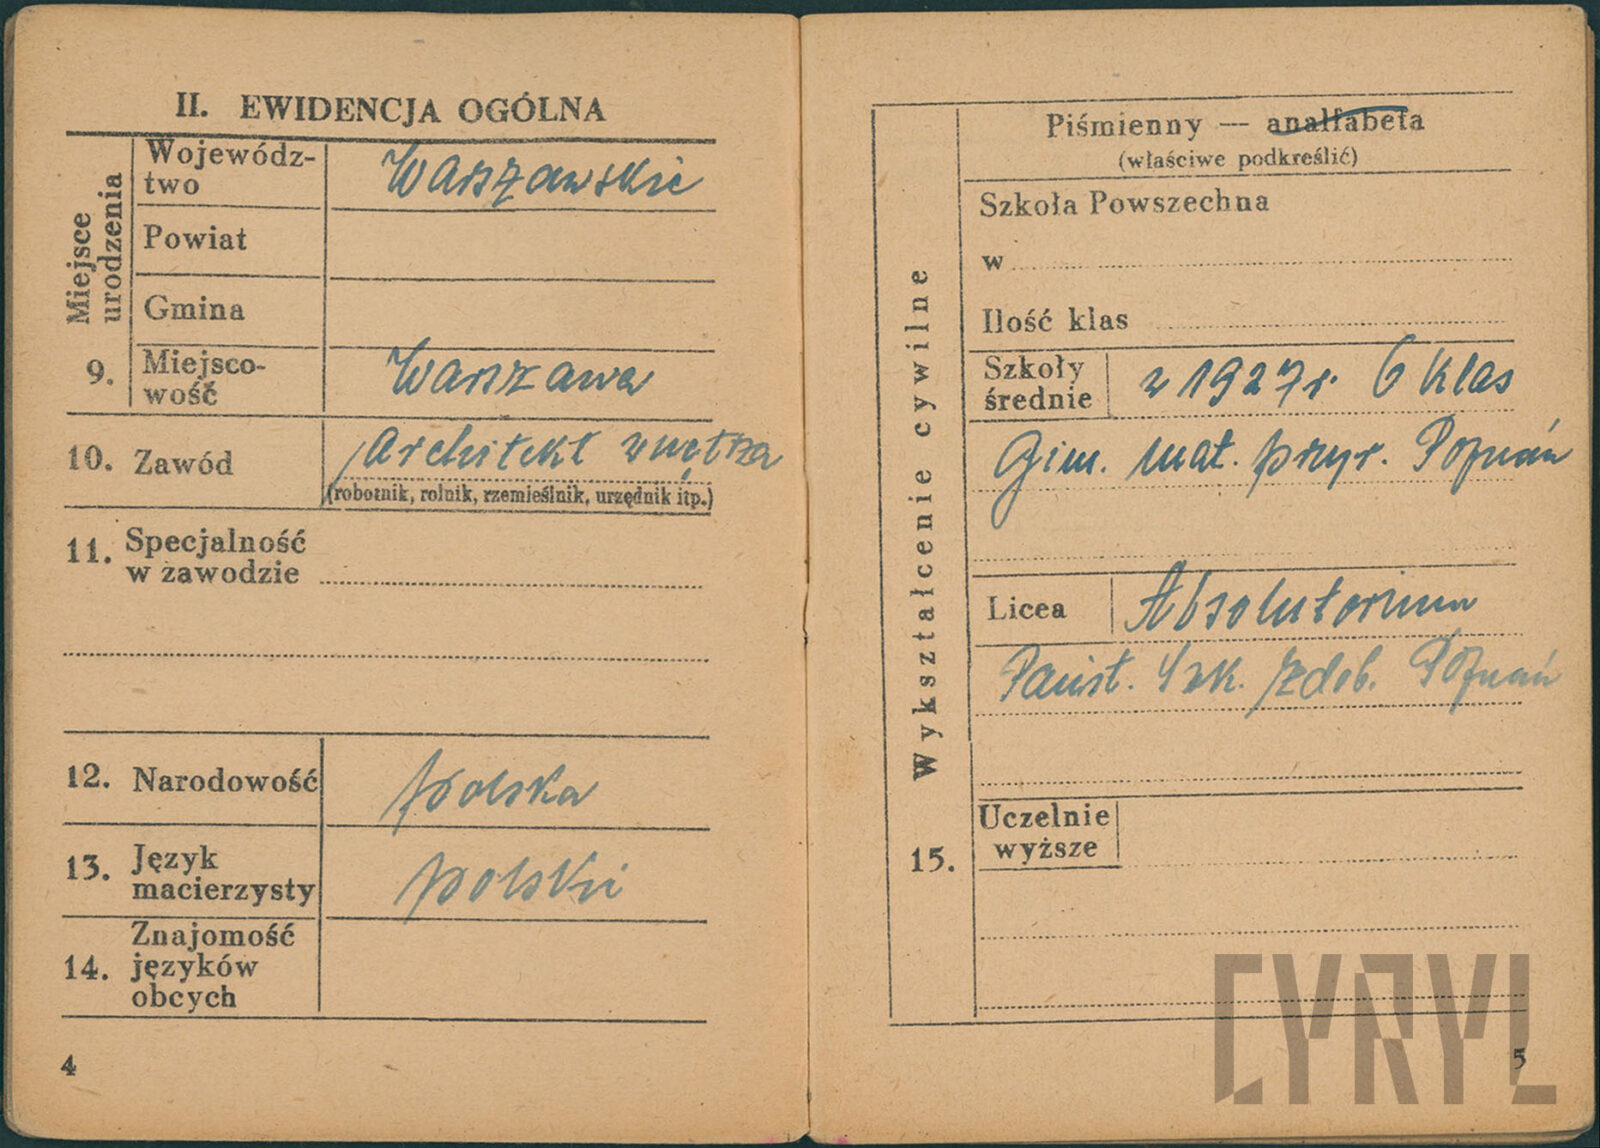 II. EWIDENCJA OGÓLNA
Miejsce
urodzenia
Wojewódz-
two
Warszawskie
Powiat
Gmina
9.
Miejsco-
wość
Warszawa
10. Zawód
Architekt wnętrza
(robotnik, rolnik, rzemieślnik, urzędnik itp.)
11. Specjalność
w zawodzie
12. Narodowość
polska
13. Język
macierzysty
polski
14. Znajomość
języków
obcych
4
Wykształcenie cywilne
15.
Piśmienny — analfabeta
(właściwe podkreślić)
Szkoła Powszechna
w
Ilość klas
Szkoły
średnie
w 1927 r. 6 klas
Gim. mat. przyr. Poznań
Licea
Absolutorium
Państ. Szk. Zdob. Poznań
Uczelnie
wyższe
5
CYRYL